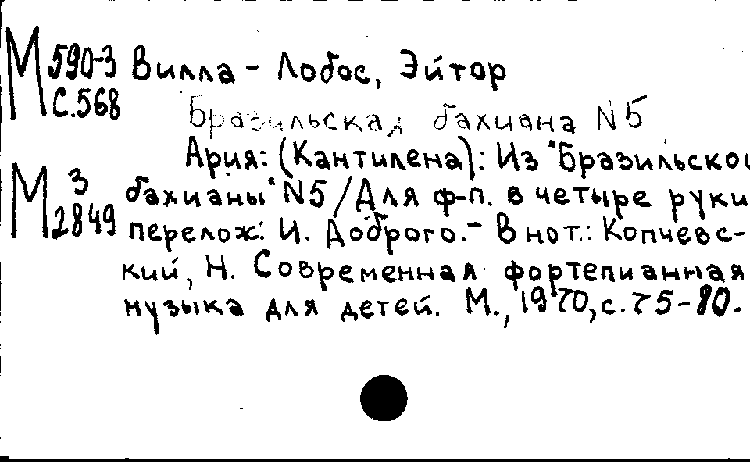 М 590-3 Вилла - Лобос, Эйтор
с.568
Бразильская бахиана N5
Ария: (Кантилена): Из "Бразильской
М 3 бахианы" N5 / Для ф-п. в четыре руки
2849 перелож. И. Доброго. - В нот.: Копчевс-
кий, Н. Современная фортепианная
музыка для детей. М., 1970, с. 75-80.